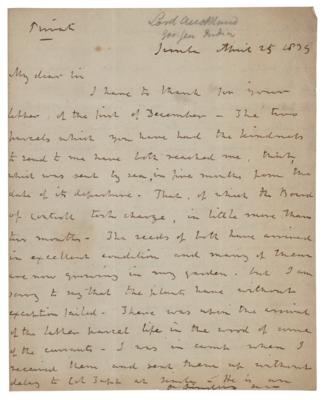 Private
Lord Auckland
Gov Gen India
Simla April 25 1839
My dear Sir
I have to thank you for your
letter of the first of December - The two
parcels which you have had the kindness
to send to me have both reached me,
which was sent by sea, in five months from the
date of its departure - That, of which the Board
of Control took charge, in little more than
two months - The seeds of both have arrived
in excellent condition and many of them
are now growing in my garden. but I am
sorry to say that the plants have without
exception failed - There was upon the arrival
of the latter parcel life in the wood of some
of the currants - I was in camp when I
received them and sent them up without
delay to Col at - He is an